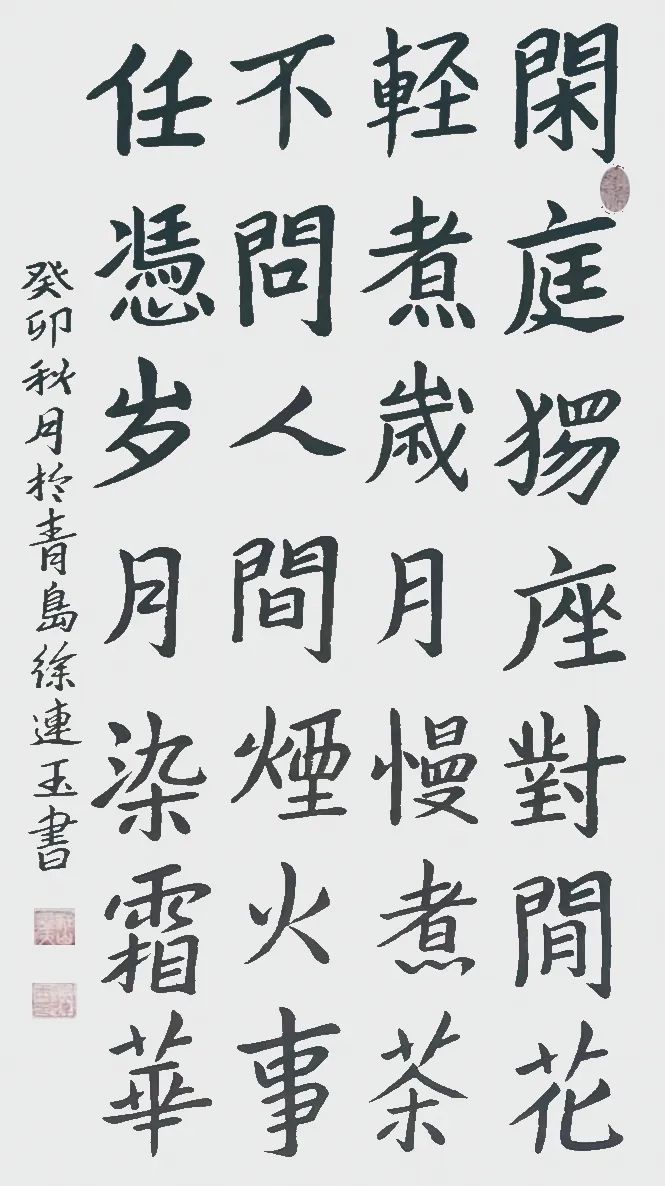 閑庭獨座對閒花
軽煮歲月慢煮茶
不問人間煙火事
任憑岁月染霜華
癸卯秋月於青島徐連玉書